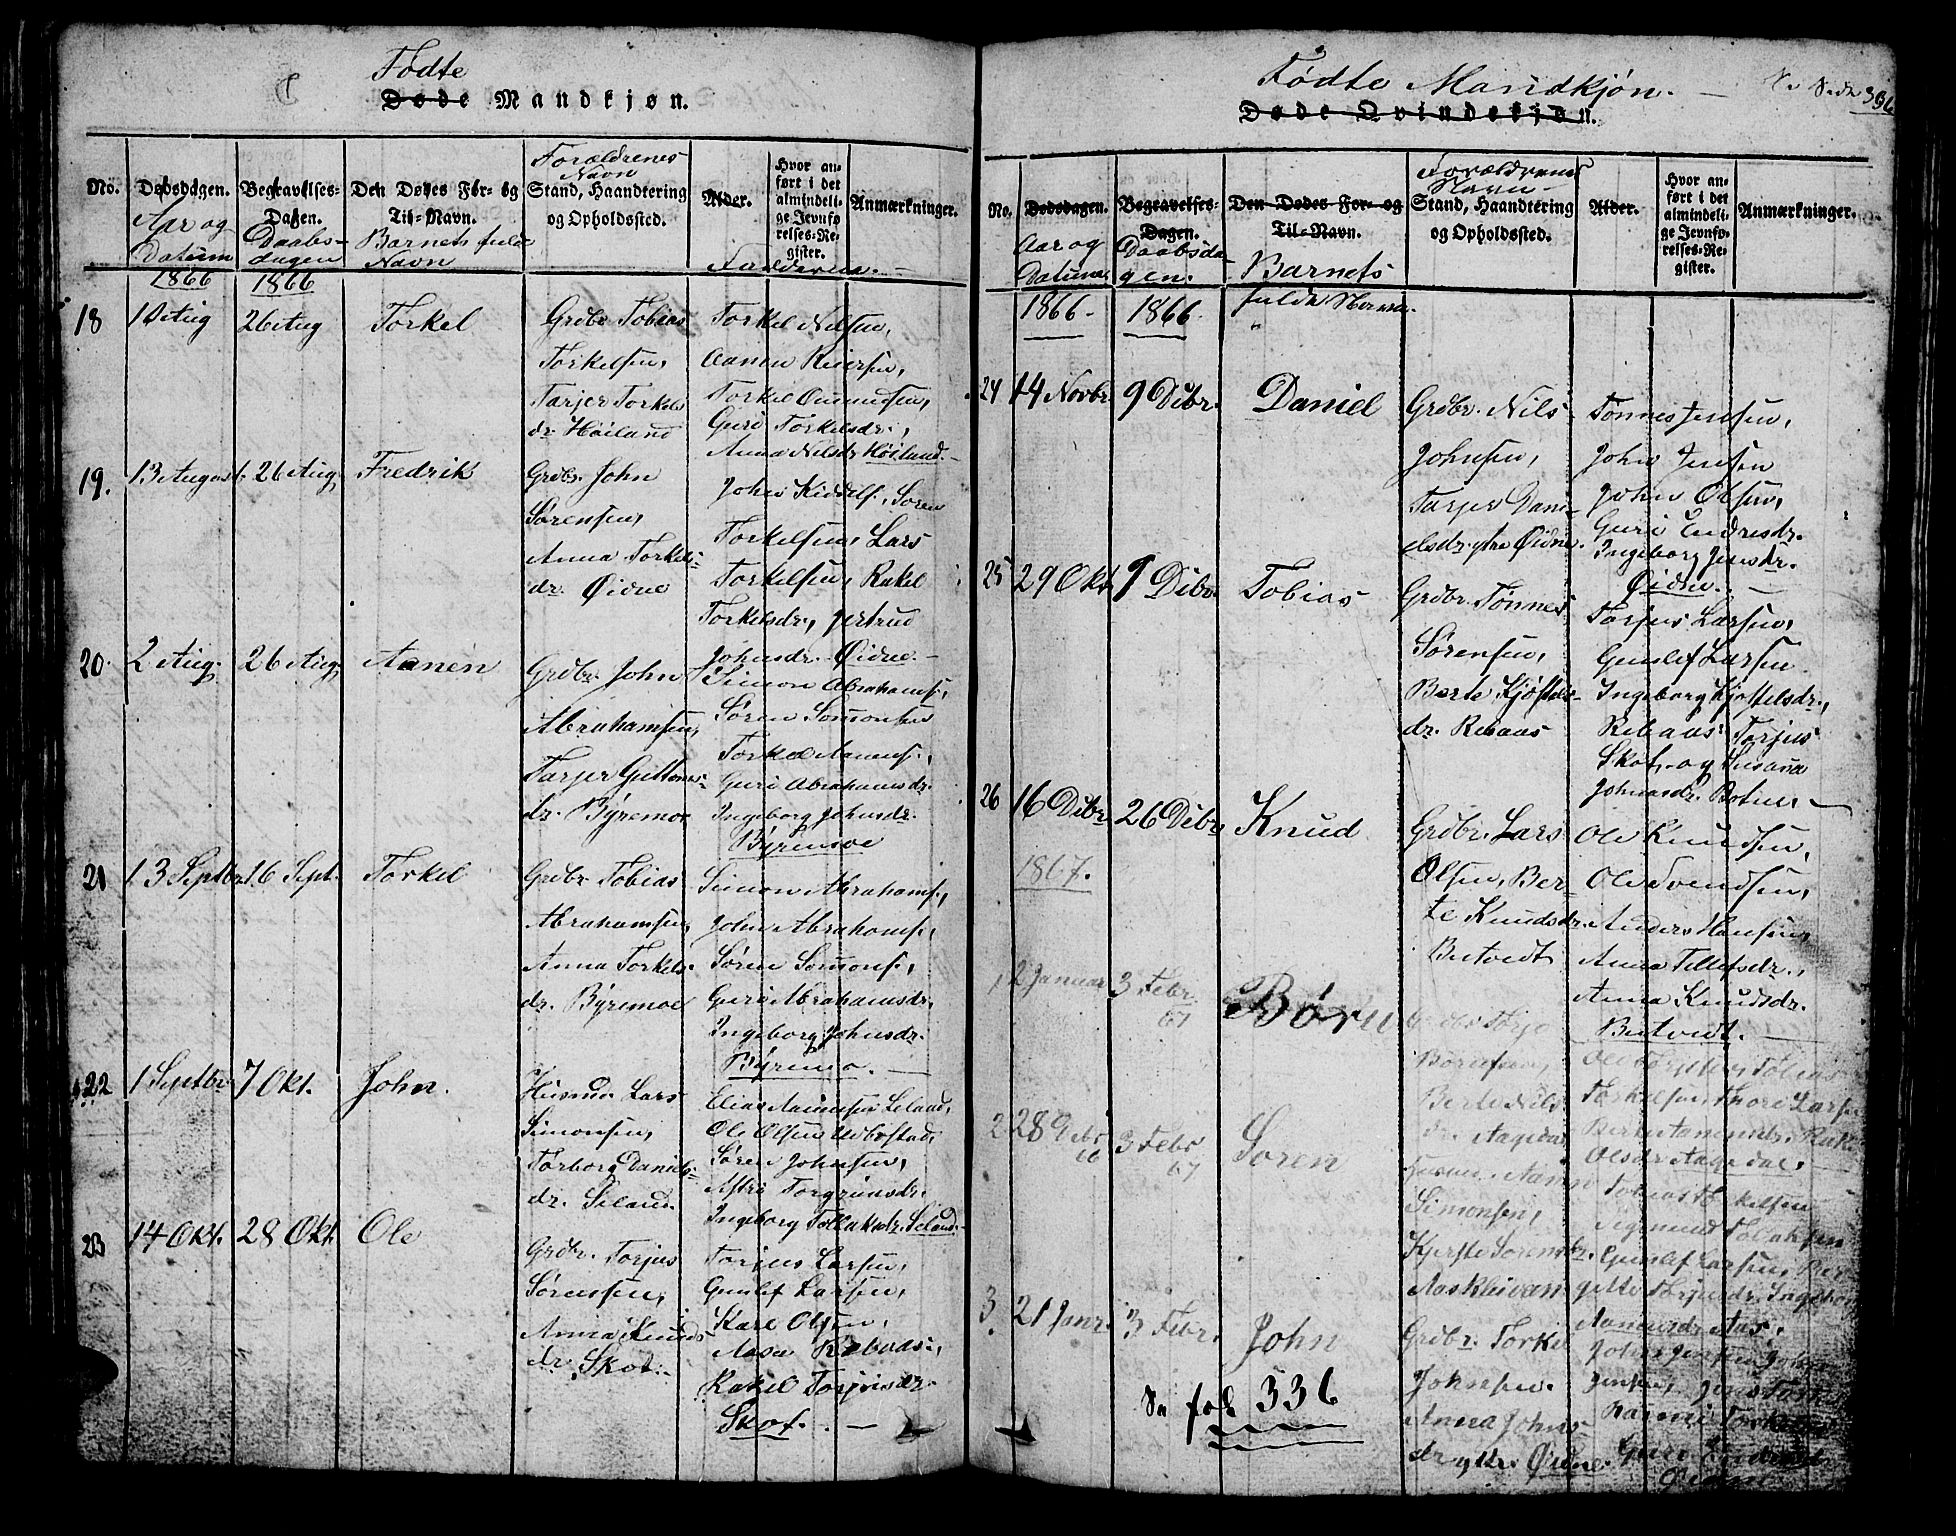 Fødte
Døde Mandkjøn.
No.
Dødsdagen.
Aar og
Datum
Begravelses-
Dagen.
Daabs-
dagen
Den Dødes For- og
Til-Navn.
Barnets fulde
Navn
Forældrenes
Navn
Stand, Haandtering
og Opholdssted.
Alder.
Hvor an-
ført i det
almindeli-
ge Jevnfø-
relses-Re-
gister.
Anmærkninger.
Fadderne.
1866
1866
18
10 Aug
26 Aug
Torkel
Grdbr Tobias
Torkelsen,
Tarjer Torkels
dr. Høiland
Torkel Nilsen,
Aanen Reiersen,
Torkel Omundsen,
Guri Torkelsdr.,
Anna Nilsdr Høiland.
19.
13 August
26 Aug
Fredrik
Grdbr. John
Sørensen,
Anna Torkels-
dr. Øidne
John Kiddelf., Sören
Torkelsen, Lars
Torkelsen, Rakel
Torkelsdr., Jertrud
Johnsdr. Øidne.
20.
2 Aug.
26 Aug.
Aanen
Grdbr. John
Abrahamsen,
Tarjer Guttorms-
dr. Byremo
Simon Abrahamf.,
Søren Somonsen
Torkel Aanenf.,
Guri Abrahamsdr.
Ingeborg Johnsdr.
Byremoe
21
13 Septbr
16 Sept.
Torkel
Grdbr Tobias
Abrahamsen,
Anna Torkels-
dr. Byremoe
Simon Abrahamf.,
John Abrahamf.,
Søren Somonf.,
Guri Abrahamsdr,
Ingeborg Johnsdr.
Byremo.
22
1 Septbr
7 Okt.
John.
Husmd Lars
Simonsen,
Torborg Daniels-
dr. Seland
Elias Aanensen Seland,
Ole Olsen Ubostad,
Søren Johnsen,
Astri Torgrimsdr.
Ingeborg Tollaksdr. Seland.
23
14 Okt.
28 Okt.
Ole
Grdbr. Torjus
Sørensen,
Anna Knuds-
dr. Skot.
Torjus Larsen,
Gunlef Larsen,
Karl Olsen,
Aasa
Rakel Torjusdr.
Skot.
Fødte Mandkjøn.
Døde Qvindekjøn.
336
No.
Dødsdagen.
Aar og
Datum
Begravelses-
Dagen.
Daabsda-
gen.
Den Dødes For- og
Til-Navn.
Barnets
fulde Navn.
Forældrenes
Navn
Stand, Haandtering
og Opholdssted.
Alder.
Hvor an-
ført i det
almindeli-
ge Jevnfø-
relses-Re-
gister.
Anmærkninger.
1866.
1866.
24
14 Novbr.
9 Dcbr.
Daniel
Grdbr. Nils
Johnsen,
Tarjer Dani-
elsdr. ytre Øidne.
Tønnes Jensen,
John Jensen
John Olsen,
Guri Endresdr.
Ingeborg Jensdr.
Øidne.
25
29 Okt.
9 Dcbr.
Tobias
Grdbr. Tønnes
Sørensen,
Berte Kjøstels-
dr. Rebaas
Torjus Larsen,
Gunlef Larsen
Ingeborg Kjøstelsdr.,
Rebaas. Torjus
Skot, og Susana
Johnsdr. Botne.
26
16 Dcbr
26 Dcbr
Knud
Grdbr. Lars
Olsen, Ber-
te Knudsdr.
Butvedt
Ole Knudsen,
Ole Svendsen,
Anders Hansen,
Anna Tellefsdr.,
Anna Knudsdr.
Butvedt.
1867.
1
2 Januar
3 Febr.
67
Børu
Berte Nils
dr. Aagedal
Ole
Tobias
Torkelsen, Thore Larsen
Berte Aanensdr.
Olsdr Aagedal.
2
28
66
3 Febr
67
Soren
Husmd. Aanen
Simonsen,
Kjerste Sorensdr.
Aaskleivan
Tobias Torkelsen
Sigmund Tobiassen
Gunlef Larsen, Ber
gitte Torjusdr. Ingeborg
Aanensdr Aas.
3.
21 Janr.
3 Febr.
John
Grdbr. Torkel
Johnsen.
Anna Johns-
dr. ytre Øidne.
John Jensen, John
Jensen, Jens
Guri
Øidne
Se fol 336